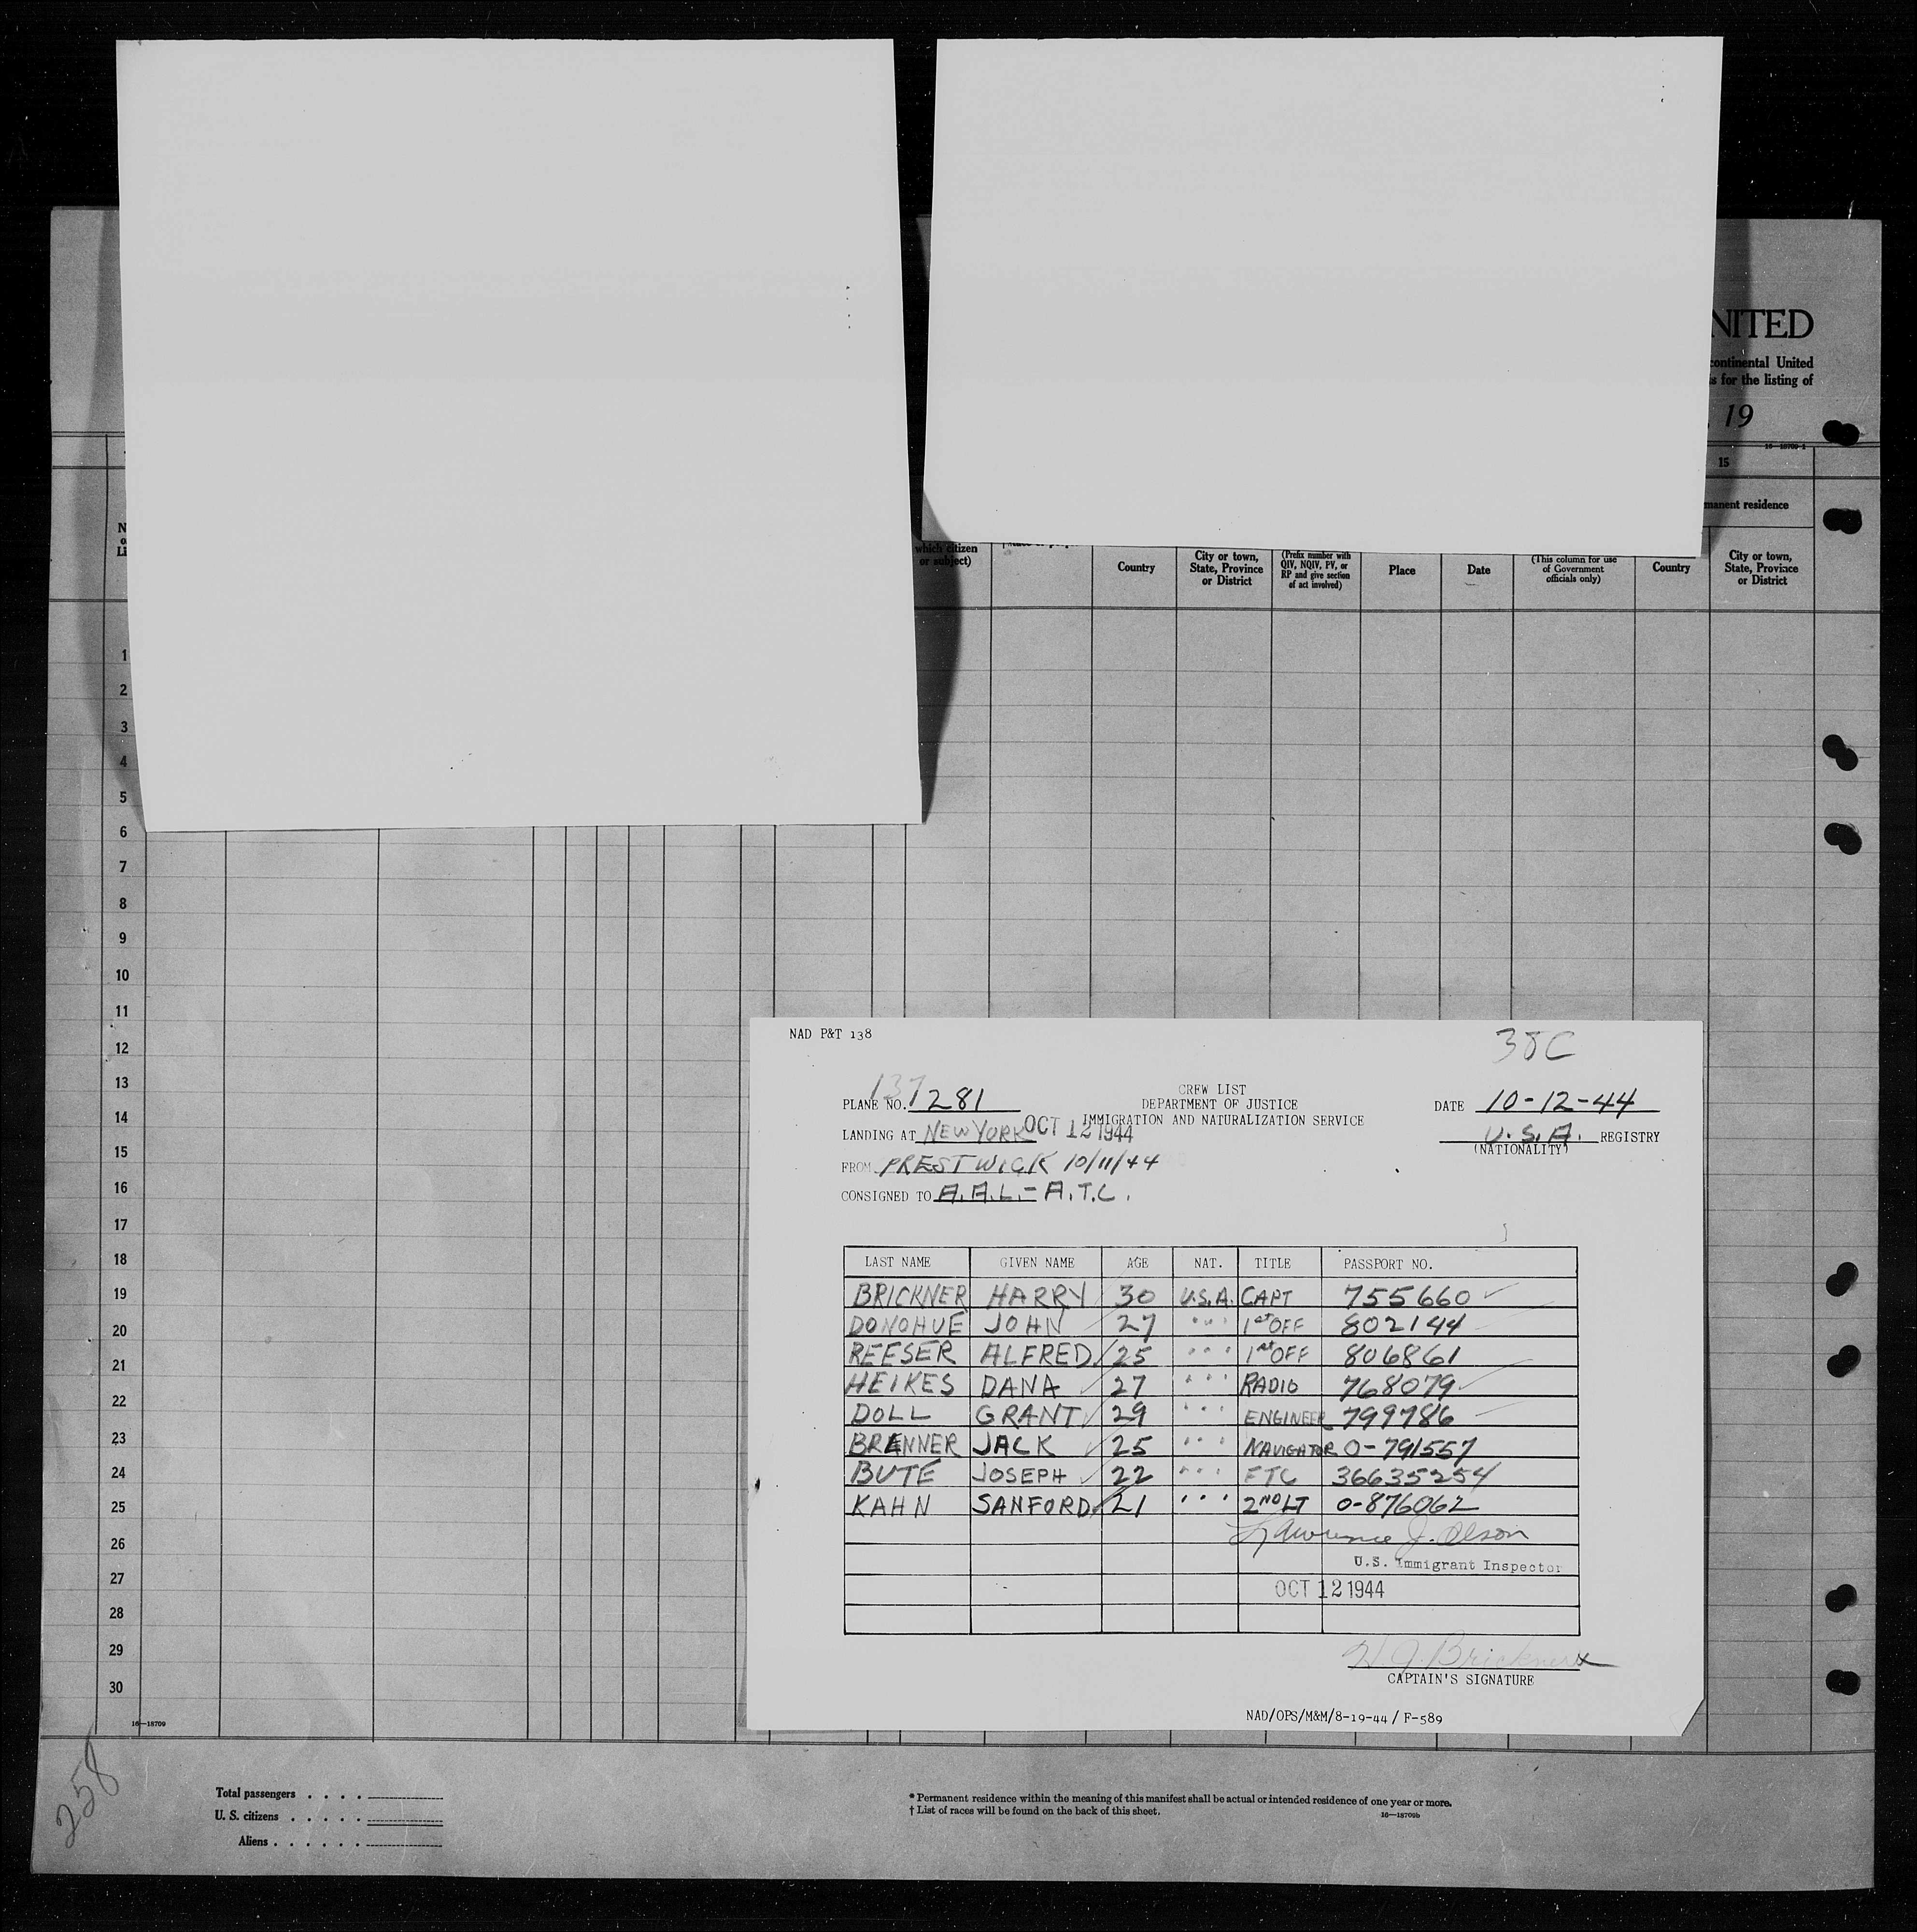 NITED
continental United
s for the listing of
, 19
16—18709-1
15
manent residence
N
o
Li
which citizen
or subject)
Country
City or town,
State, Province
or District
(Prefix number with
QIV, NQIV, PV, or
RP and give section
of act involved)
Place
Date
(This column for use
of Government
officials only)
Country
City or town,
State, Province
or District
1
2
3
4
5
6
7
8
9
10
11
12
13
14
15
16
17
18
19
20
21
22
23
24
25
26
27
28
29
30
16—18709
NAD P&T 138
38C
137
PLANE NO. 7281
CREW LIST
DEPARTMENT OF JUSTICE
IMMIGRATION AND NATURALIZATION SERVICE
DATE 10-12-44
LANDING AT NEW YORK OCT 12 1944
U.S.A. REGISTRY
(NATIONALITY)
FROM PRESTWICK 10/11/44
CONSIGNED TO A.A.L.- A.T.C.
LAST NAME GIVEN NAME AGE NAT. TITLE PASSPORT NO.
BRICKNER HARRY 30 U.S.A. CAPT 755660
DONOHUE JOHN 27 " " " 1st OFF 802144
REESER ALFRED 25 " " " 1st OFF 806861
HEIKES DANA 27 " " " RADIO 768079
DOLL GRANT 29 " " " ENGINEER 799786
BRENNER JACK 25 " " " NAVIGATOR O-791557
BUTE JOSEPH 22 " " " FTC 36635254
KAHN SANFORD 21 " " " 2ND LT O-876062
Lawrence J. Olson
U.S. Immigrant Inspector
OCT 12 1944
H. J. Brickner
CAPTAIN'S SIGNATURE
NAD/OPS/M&M/8-19-44 / F-589
258
Total passengers . . . .
U. S. citizens . . . . .
Aliens . . . . . .
* Permanent residence within the meaning of this manifest shall be actual or intended residence of one year or more.
† List of races will be found on the back of this sheet.
16—18709b